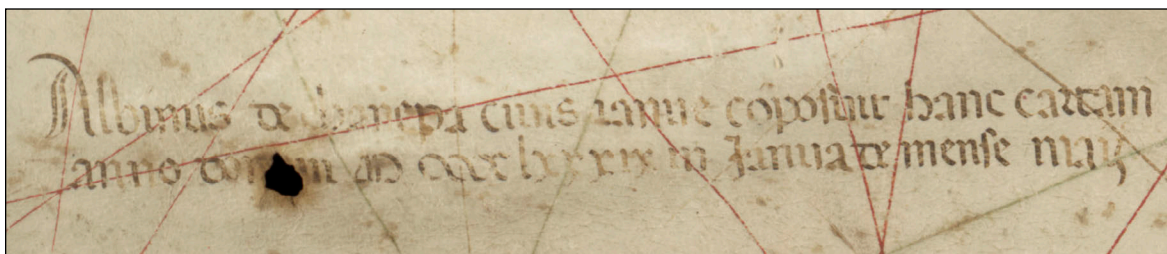 Albinus de Canepa ciuis Ianue cõposuit hanc cartam
anno domini M CCCC lxxxix in Janua de mense maij